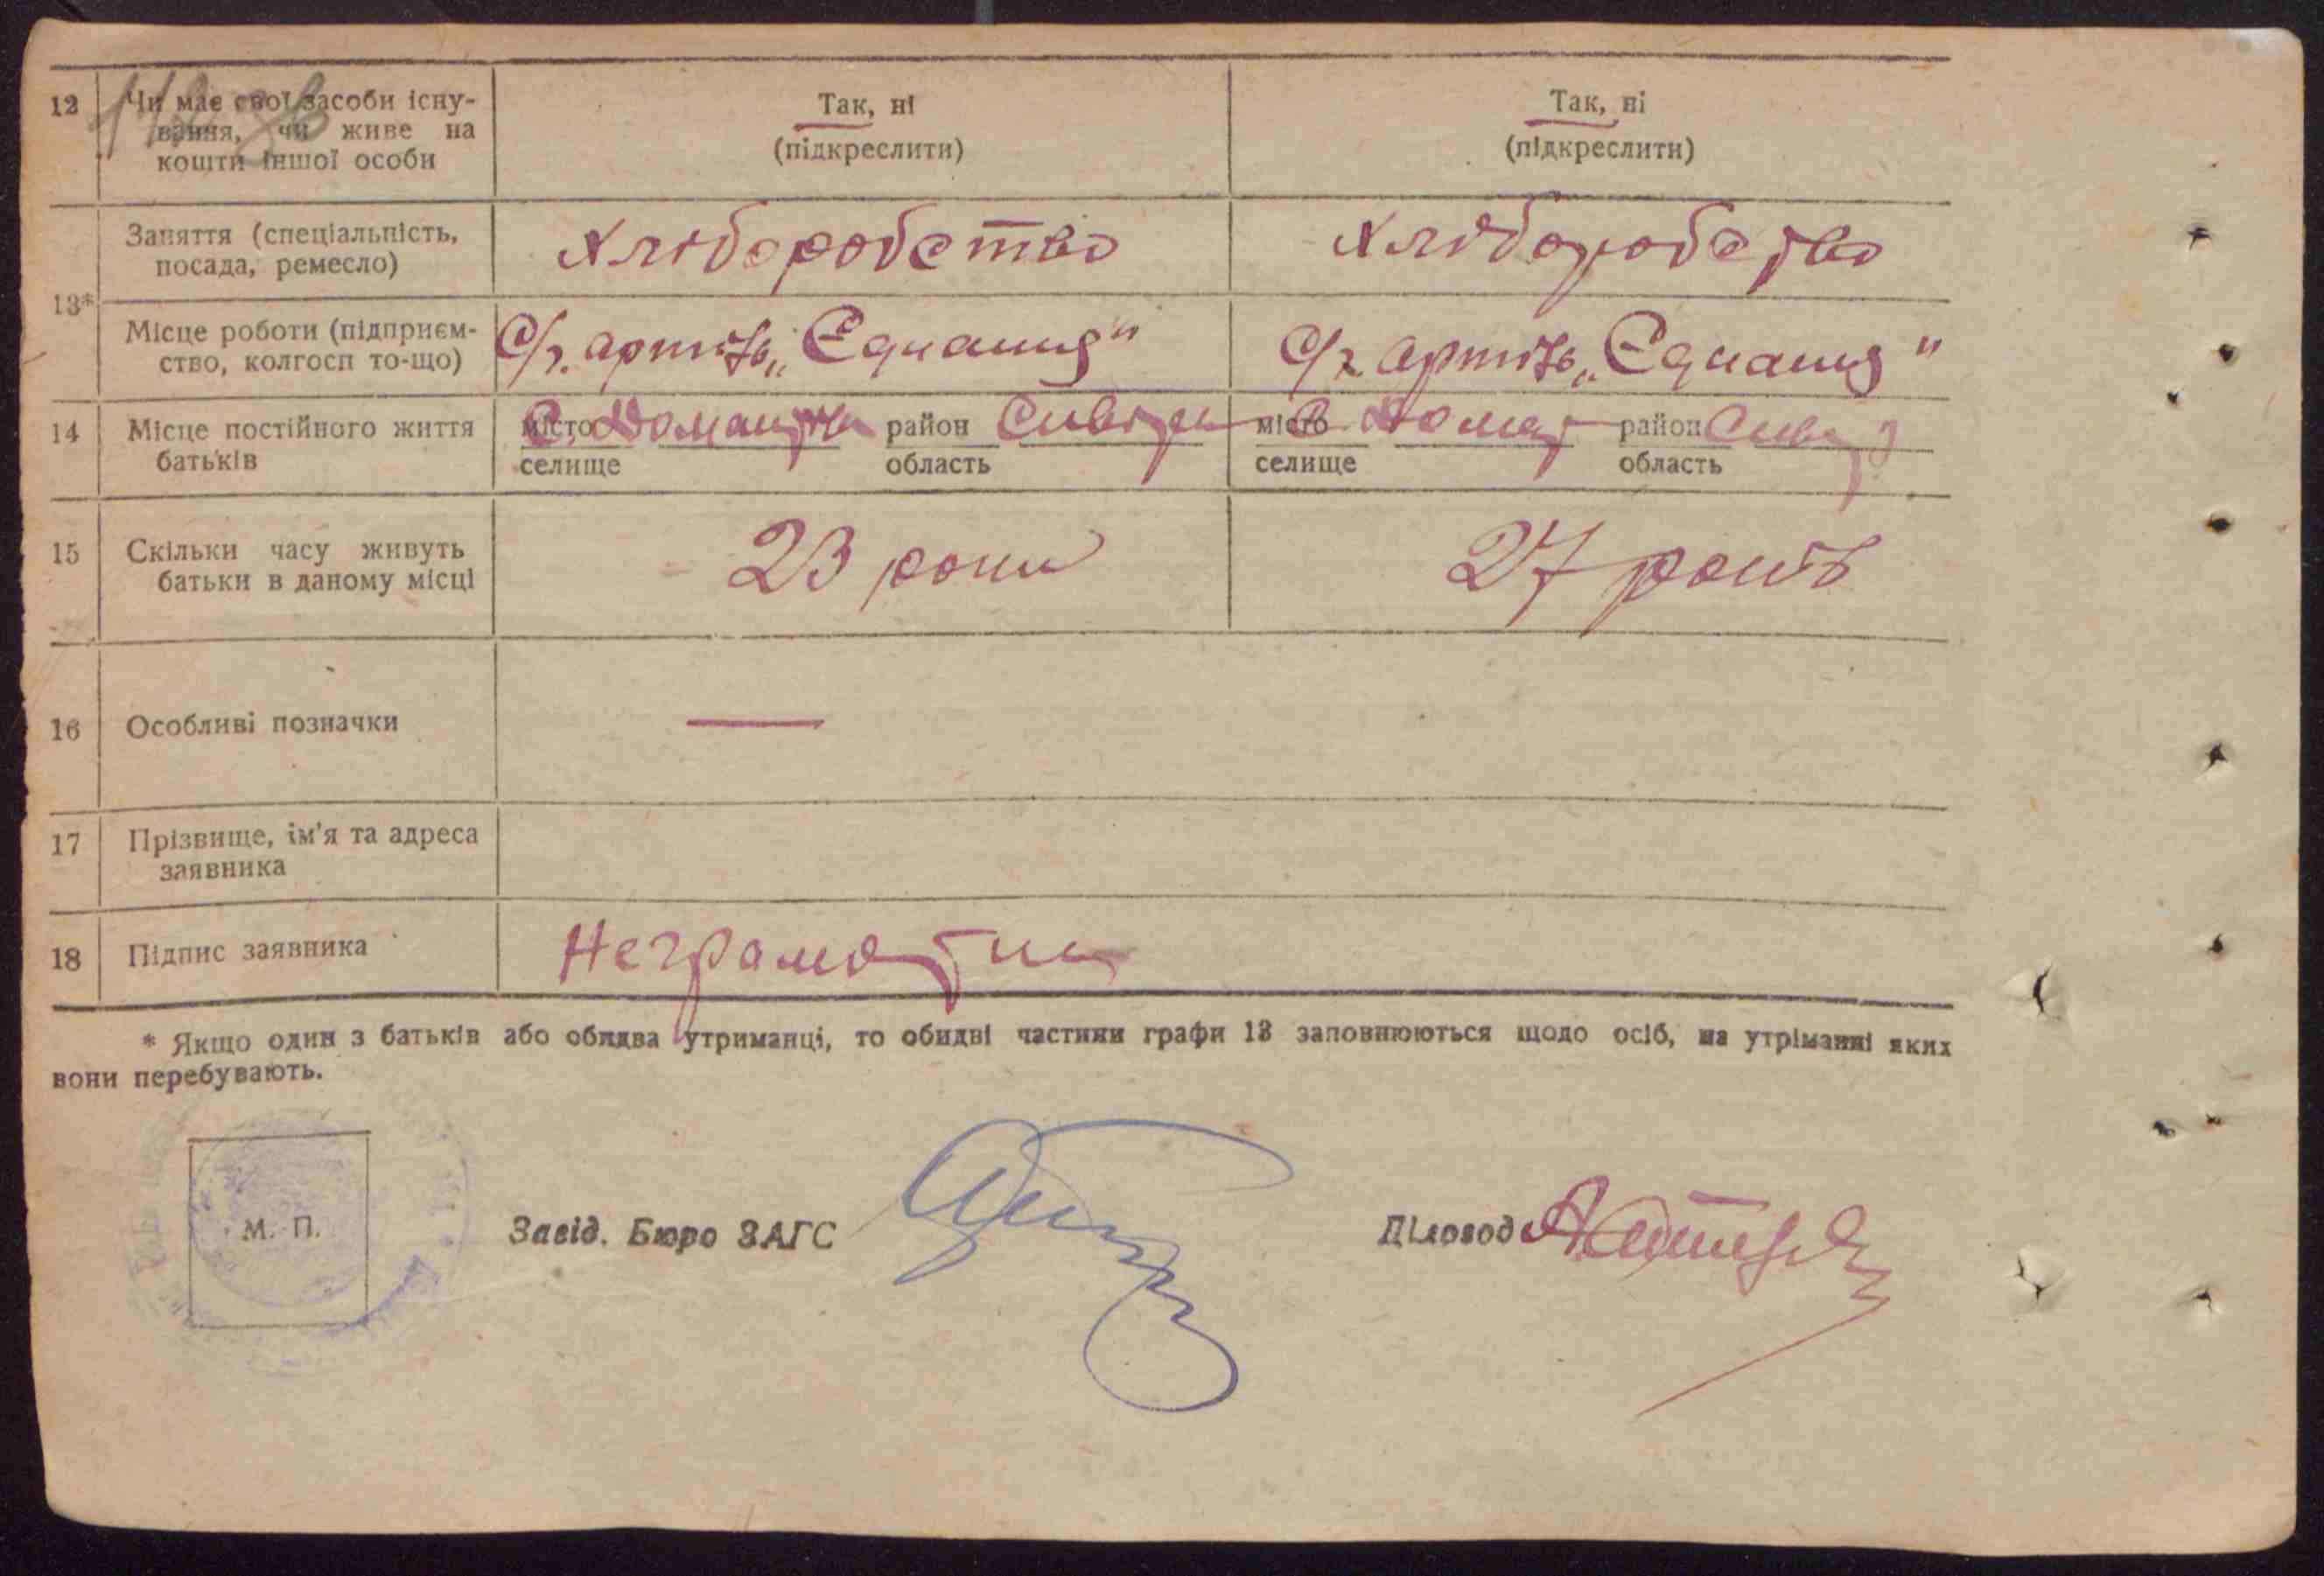 12 Чи має свої засоби існу-
вання, чи живе на
кошти іншої особи
Так, ні
(підкреслити)
Так, ні
(підкреслити)
13*
Заняття (спеціальність,
посада, ремесло)
Хліборобство
Хліборобство
Місце роботи (підприєм-
ство, колгосп то-що)
С/г. артіль „Єднання"
С/г артіль „Єднання"
14 Місце постійного життя
батьків
місто район
селище область
місто район
селище область
15 Скільки часу живуть
батьки в даному місці
23 роки
27 років
16 Особливі позначки
—
17 Прізвище, ім'я та адреса
заявника
18 Підпис заявника
* Якщо один з батьків або обидва утриманці, то обидві частини графи 13 заповнюються щодо осіб, на утріманні яких
вони перебувають.
М. П.
Завід. Бюро ЗАГС
Діловод